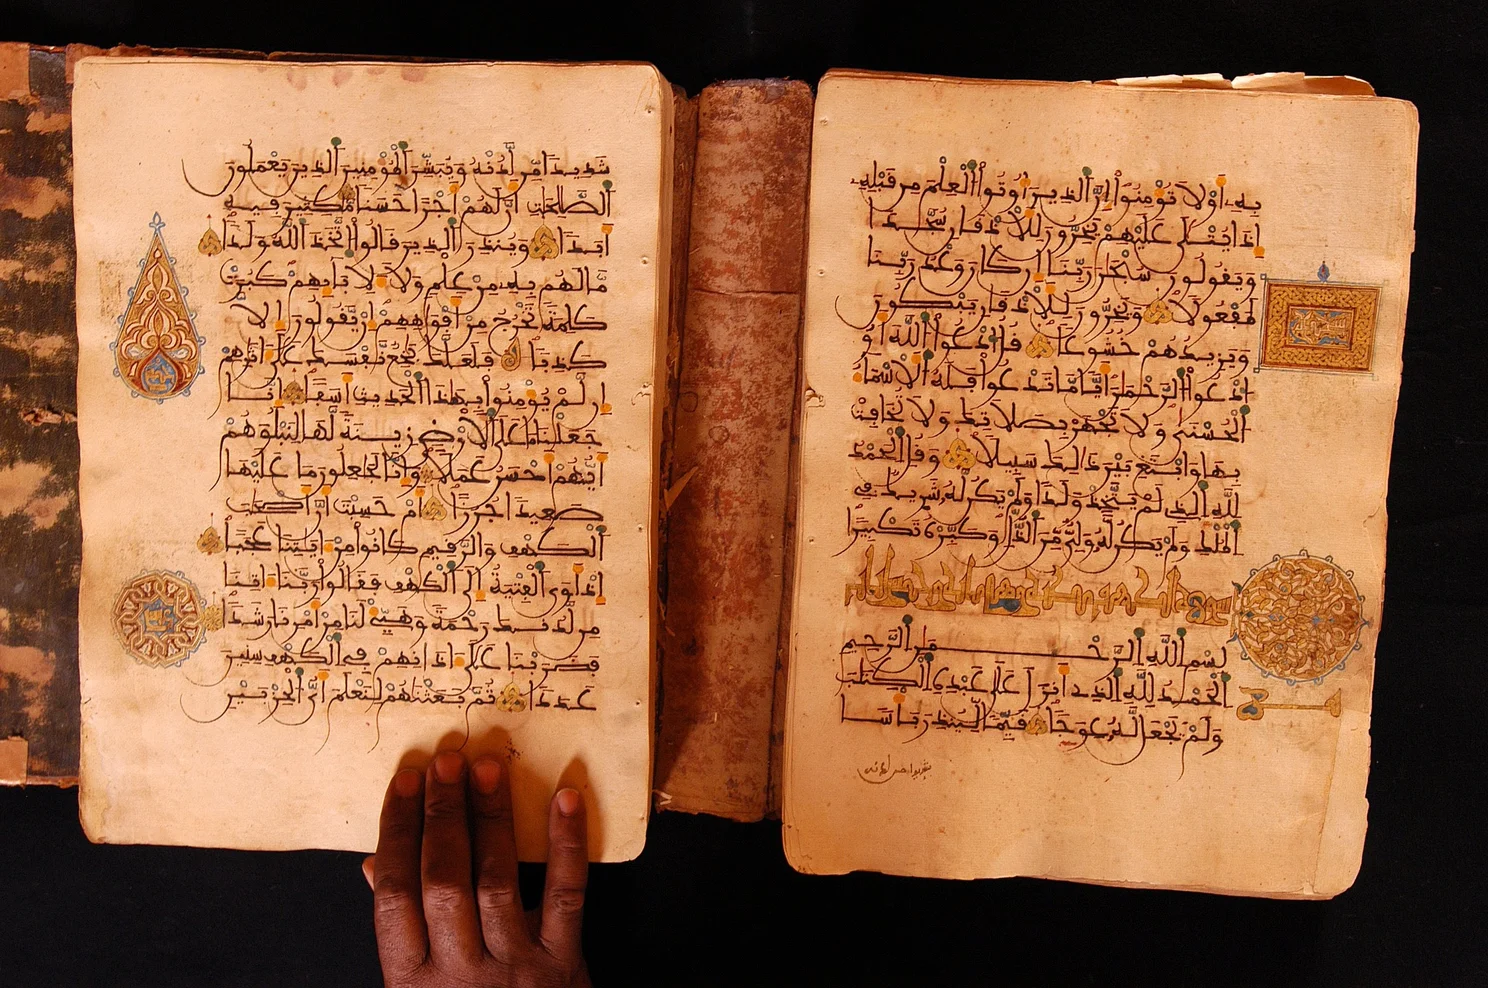 بِهِ أَوْ لَا تُؤْمِنُوا إِنَّ الَّذِينَ أُوتُوا الْعِلْمَ مِن قَبْلِهِ
إِذَا يُتْلَى عَلَيْهِمْ يَخِرُّونَ لِلْأَذْقَانِ سُجَّدًا
وَيَقُولُونَ سُبْحَنَ رَبِّنَا إِن كَانَ وَعْدُ رَبِّنَا
لَمَفْعُولًا وَيَخِرُّونَ لِلْأَذْقَانِ يَبْكُونَ
وَيَزِيدُهُمْ خُشُوعًا قُلِ ادْعُوا اللَّهَ أَوُ
ادْعُوا الرَّحْمَنَ أَيًّا مَّا تَدْعُوا فَلَهُ الْأَسْمَاءُ
الْحُسْنَى وَلَا تَجْهَرْ بِصَلَاتِكَ وَلَا تُخَافِتْ
بِهَا وَابْتَغِ بَيْنَ ذَلِكَ سَبِيلًا وَقُلِ الْحَمْدُ
لِلَّهِ الَّذِي لَمْ يَتَّخِذْ وَلَدًا وَلَمْ يَكُن لَّهُ شَرِيكٌ فِي
الْمُلْكِ وَلَمْ يَكُن لَّهُ وَلِيٌّ مِّنَ الذُّلِّ وَكَبِّرْهُ تَكْبِيرًا
بِسْمِ اللَّهِ الرَّحْمَنِ الرَّحِيمِ
الْحَمْدُ لِلَّهِ الَّذِي أَنزَلَ عَلَى عَبْدِهِ الْكِتَبَ
وَلَمْ يَجْعَل لَّهُ عِوَجًا قَيِّمًا لِّيُنذِرَ بَأْسًا
شَدِيدًا مِّن لَّدُنْهُ وَيُبَشِّرَ الْمُؤْمِنِينَ الَّذِينَ يَعْمَلُونَ
الصَّلِحَتِ أَنَّ لَهُمْ أَجْرًا حَسَنًا مَّكِثِينَ فِيهِ
أَبَدًا وَيُنذِرَ الَّذِينَ قَالُوا اتَّخَذَ اللَّهُ وَلَدًا
مَّا لَهُم بِهِ مِنْ عِلْمٍ وَلَا لِآبَائِهِمْ كَبُرَتْ
كَلِمَةً تَخْرُجُ مِنْ أَفْوَاهِهِمْ إِن يَقُولُونَ إِلَّا
كَذِبًا فَلَعَلَّكَ بَخِعٌ نَّفْسَكَ عَلَى آثَرِهِمْ
إِن لَّمْ يُؤْمِنُوا بِهَذَا الْحَدِيثِ أَسَفًا إِنَّا
جَعَلْنَا مَا عَلَى الْأَرْضِ زِينَةً لَّهَا لِنَبْلُوَهُمْ
أَيُّهُمْ أَحْسَنُ عَمَلًا وَإِنَّا لَجَعِلُونَ مَا عَلَيْهَا
صَعِيدًا جُرُزًا أَمْ حَسِبْتَ أَنَّ أَصْحَبَ
الْكَهْفِ وَالرَّقِيمِ كَانُوا مِنْ آيَتِنَا عَجَبًا
إِذْ أَوَى الْفِتْيَةُ إِلَى الْكَهْفِ فَقَالُوا رَبَّنَا آتِنَا
مِن لَّدُنكَ رَحْمَةً وَهَيِّئْ لَنَا مِنْ أَمْرِنَا رَشَدًا
فَضَرَبْنَا عَلَى آذَانِهِمْ فِي الْكَهْفِ سِنِينَ
عَدَدًا ثُمَّ بَعَثْنَهُمْ لِنَعْلَمَ أَيُّ الْحِزْبَيْنِ